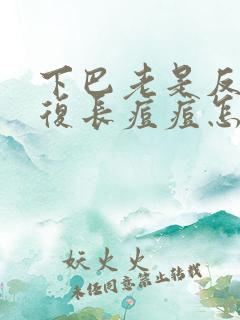 下巴老是反
復長痘痘怎
妖火火
未经同意禁止转载